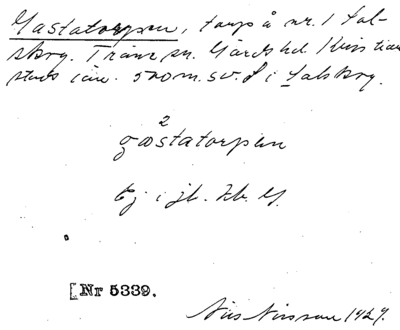 Gastatorpen, torp å nr. 1 Fal-
skog. Träne sn. Gärds hd. Kristian
stads län. 500 m. sv. f i Falskog.
2
gastatorpen
Ej i jb.
[Nr 5339.
Nils Nilsson 1929.